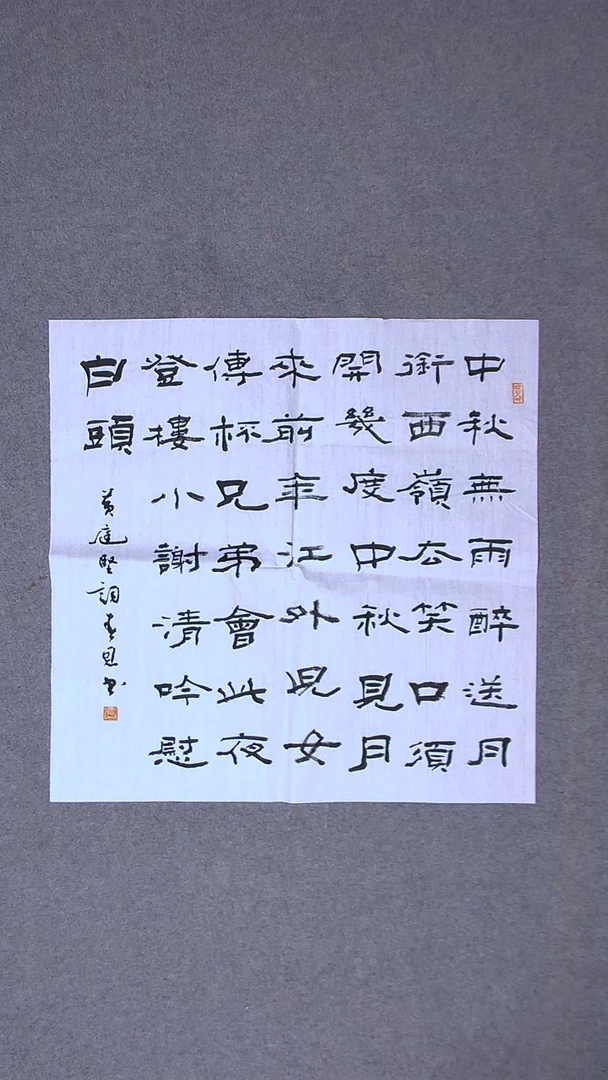 中秋無雨醉送月
銜西嶺去笑口須
開幾度中秋見月
來前年江外兒女
傳杯兄弟會此夜
登樓小謝清吟慰
白頭
黄庭堅詞 书